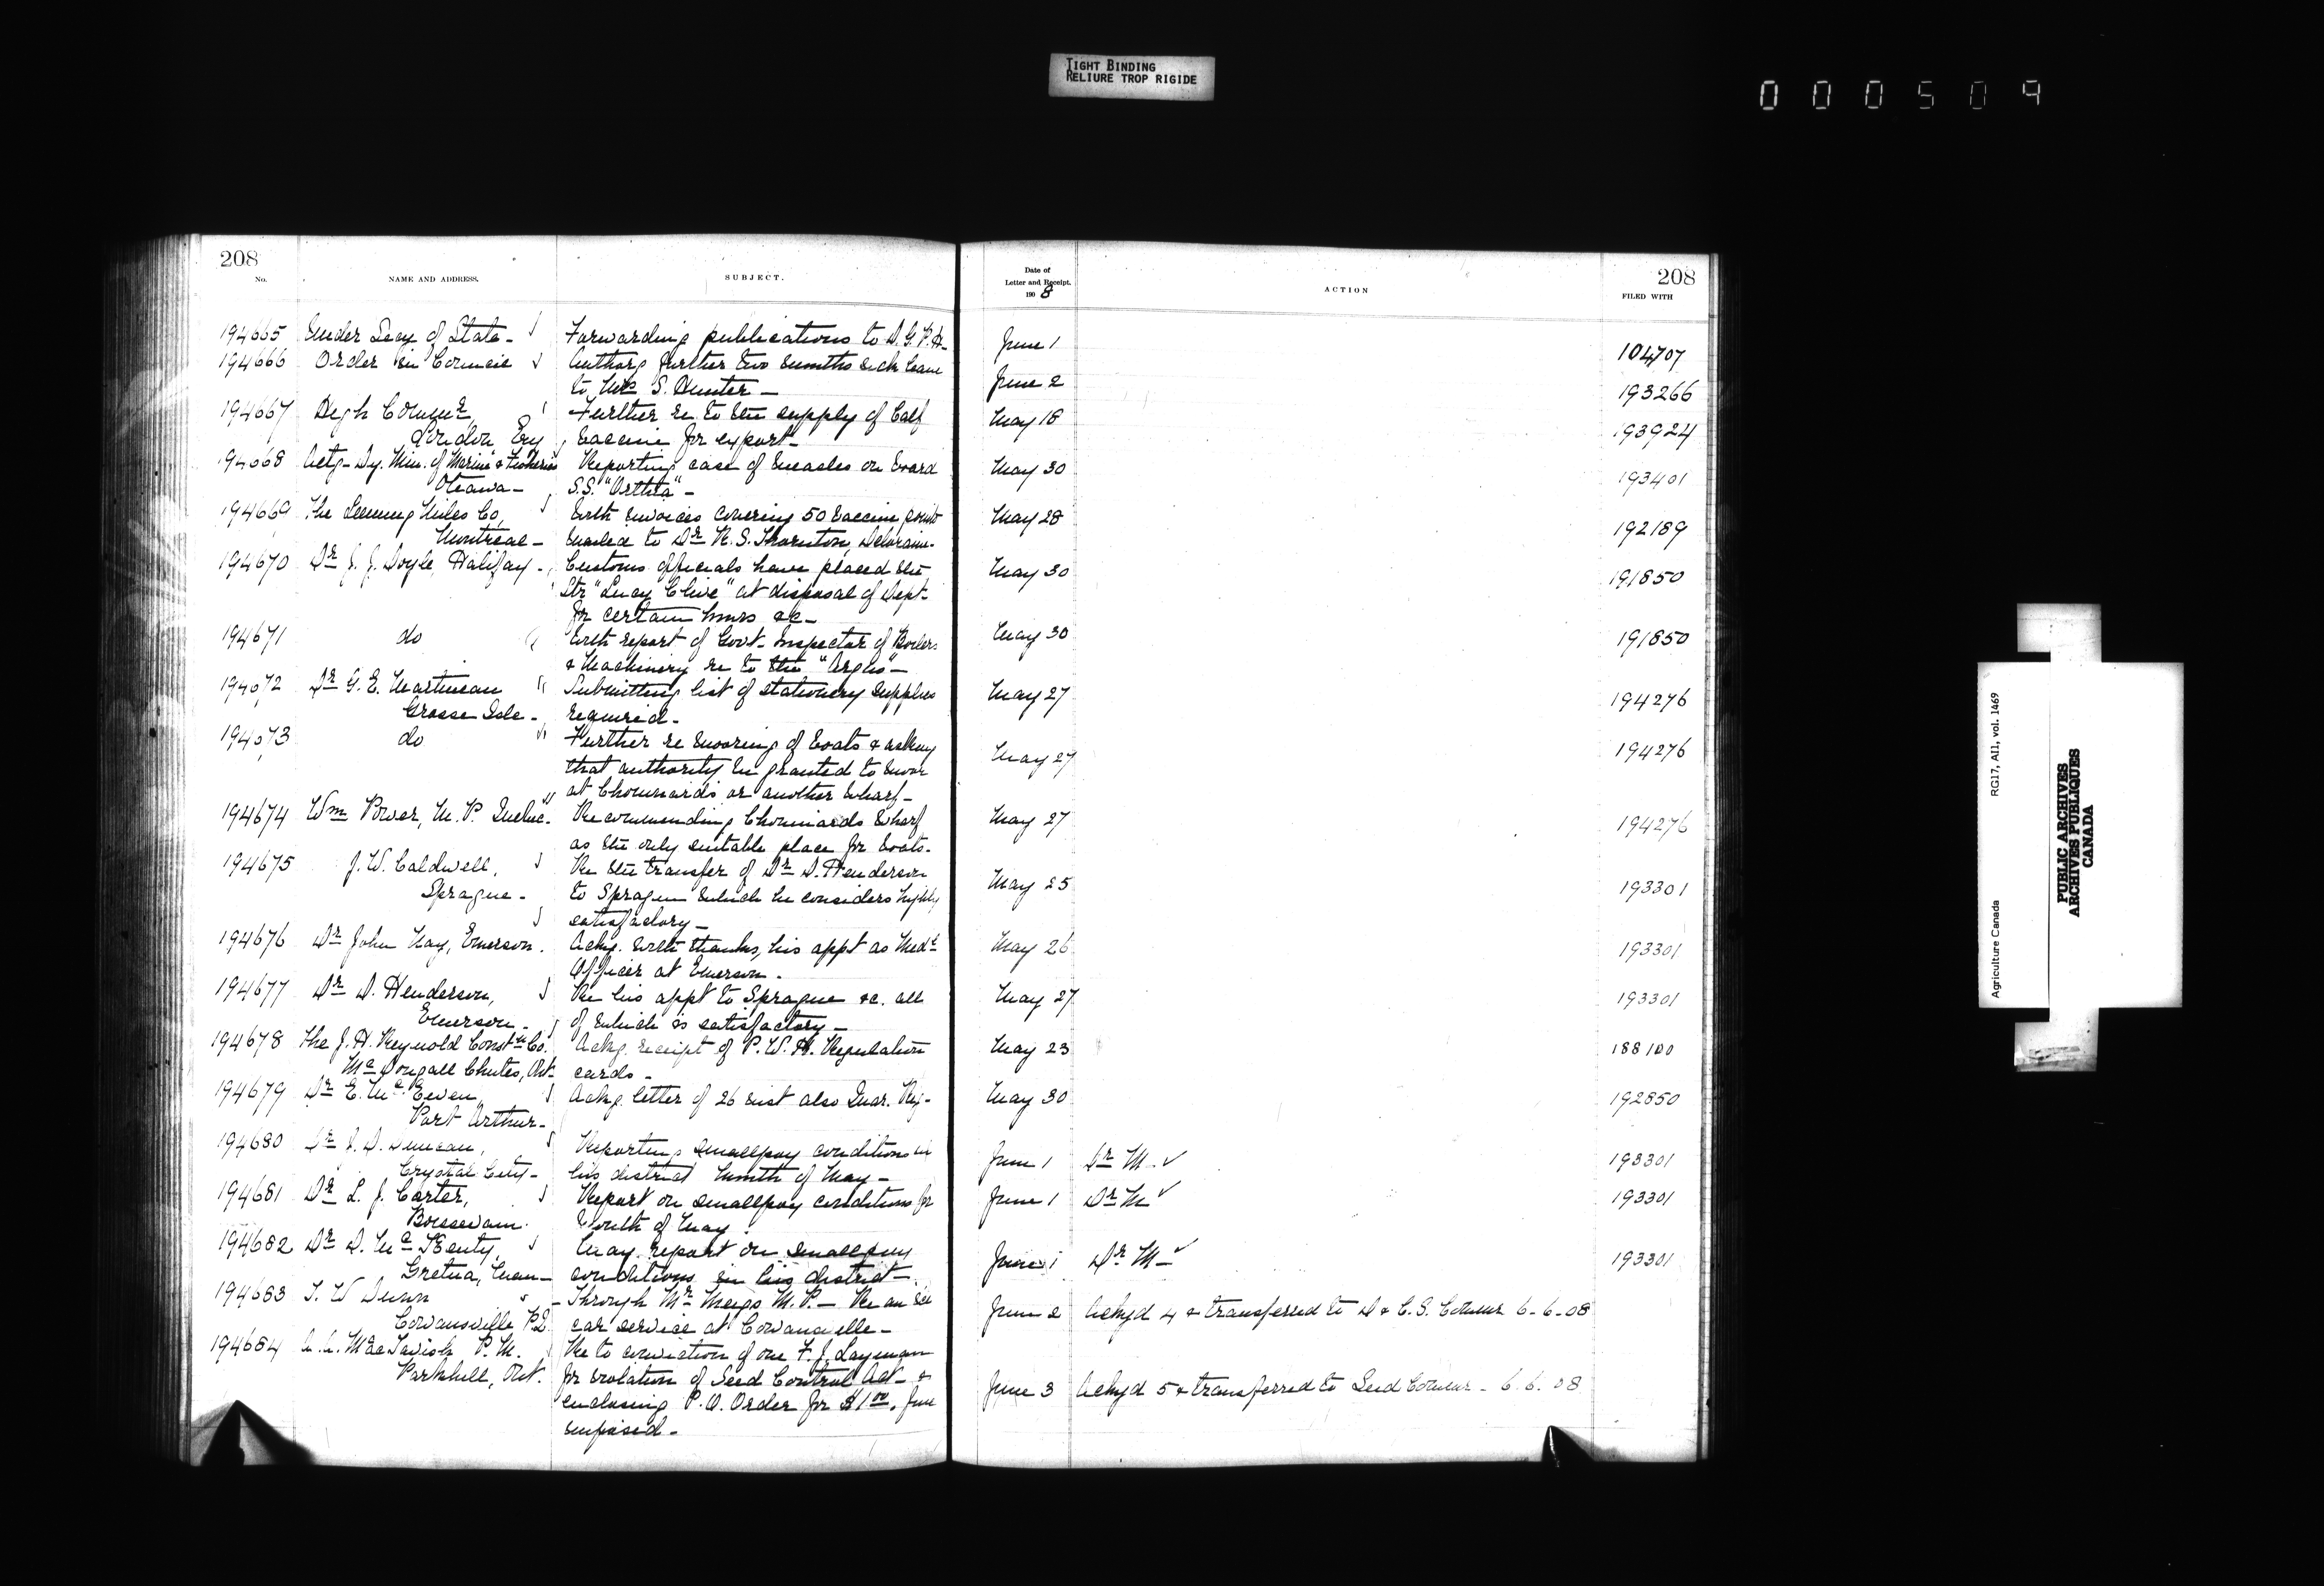 TIGHT BINDING
RELIURE TROP RIGIDE
000509
208
No. NAME AND ADDRESS. SUBJECT.
194665 Under Secy of State - Forwarding publications to D.G.P.H-
194666 Order in Council Authorg further two months sick leave
to Mrs S. Hunter -
194667 High Commr, Further re to the supply of Calf
London Eng Vaccine for export -
194668 Actg - Dy. Min. of Marine & Fisheries Reporting case of measles on board
Ottawa - S.S. "Orthia" -
194669 The Leeming Miles Co, With invoices covering 50 Vaccine points
Montreal - mailed to Dr R. S. Thornton, Deloraine.
194670 Dr J. J. Doyle, Halifax - Customs officials have placed the
Str "Lucy Clive" at disposal of Dept-
for certain hours &c -
194671 do With report of Govt- Inspector of Boilers
& Machinery re to the "Argus" -
194672 Dr G. E. Martineau Submitting list of stationery supplies
Grosse Isle - required -
194673 do Further re mooring of boats & asking
that authority be granted to moor
at Chouinards or another wharf -
194674 Wm Power, M. P. Quebec. Recommending Chouinards wharf
as the only suitable place for boats.
194675 J. W. Caldwell, Re the transfer of Dr D. Henderson
Sprague - to Sprague which he considers highly
satisfactory -
194676 Dr John Hay, Emerson. Ackg. with thanks, his appt as Medl
Officer at Emerson.
194677 Dr D. Henderson, Re his appt to Sprague &c. all
Emerson - of which is satisfactory -
194678 The J. H. Reynold Constn Co. Ackg. receipt of P. W. H. Regulation
Mc Dougall Chutes, Ont- cards -
194679 Dr E. Mc Ewen, Ackg. letter of 26 inst also Quar. Reg-
Port Arthur -
194680 Dr J. D. Duncan, Reporting smallpox conditions in
Crystal City - his district month of May -
194681 Dr L. J. Carter, Report on smallpox conditions for
Boissevain. month of May.
194682 Dr D. Mc Kenty, May report on smallpox
Gretna, Man - conditions in his district -
194683 T. W Dunn Through Mr Meigs M. P. - Re an ice
Cowansville P.Q. car service at Cowansville -
194684 MacTavish P. M. Re to conviction of one F. J. Layman
Parkhill, Ont. for violation of Seed Control Act - &
enclosing P. O. Order for $1 00, fine
imposed -
Date of
Letter and Receipt.
1908 ACTION FILED WITH
208
June 1 104707
June 2 193266
May 18 193924
May 30 193401
May 28 192189
May 30 191850
May 30 191850
May 27 194276
May 27 194276
May 27 194276
May 25 193301
May 26 193301
May 27 193301
May 23 188100
May 30 192850
June 1 Dr M - ✓ 193301
June 1 Dr M ✓ 193301
June 1 Dr M - ✓ 193301
June 2 Ackgd 4 & transferred to D & C. S. Commr 6-6-08
June 3 Ackgd 5 & transferred to Seed Commr - 6.6.08
Agriculture Canada RG17, AI1, vol. 1469
PUBLIC ARCHIVES
ARCHIVES PUBLIQUES
CANADA